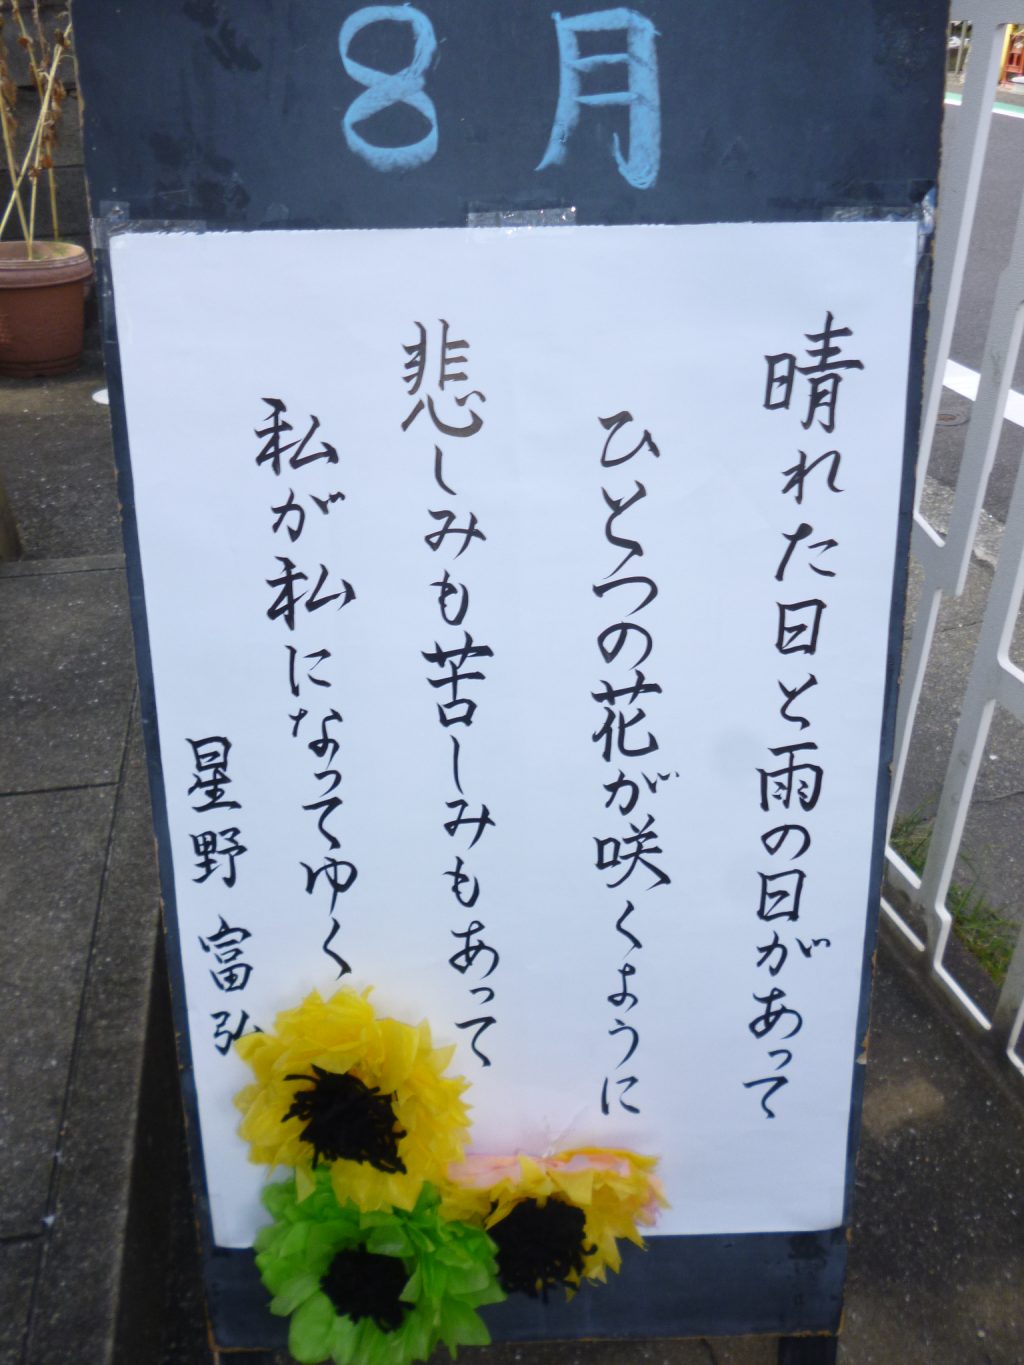 8月
晴れた日と雨の日があって
ひとつの花が咲くように
悲しみも苦しみもあって
私が私になってゆく
星野 富弘